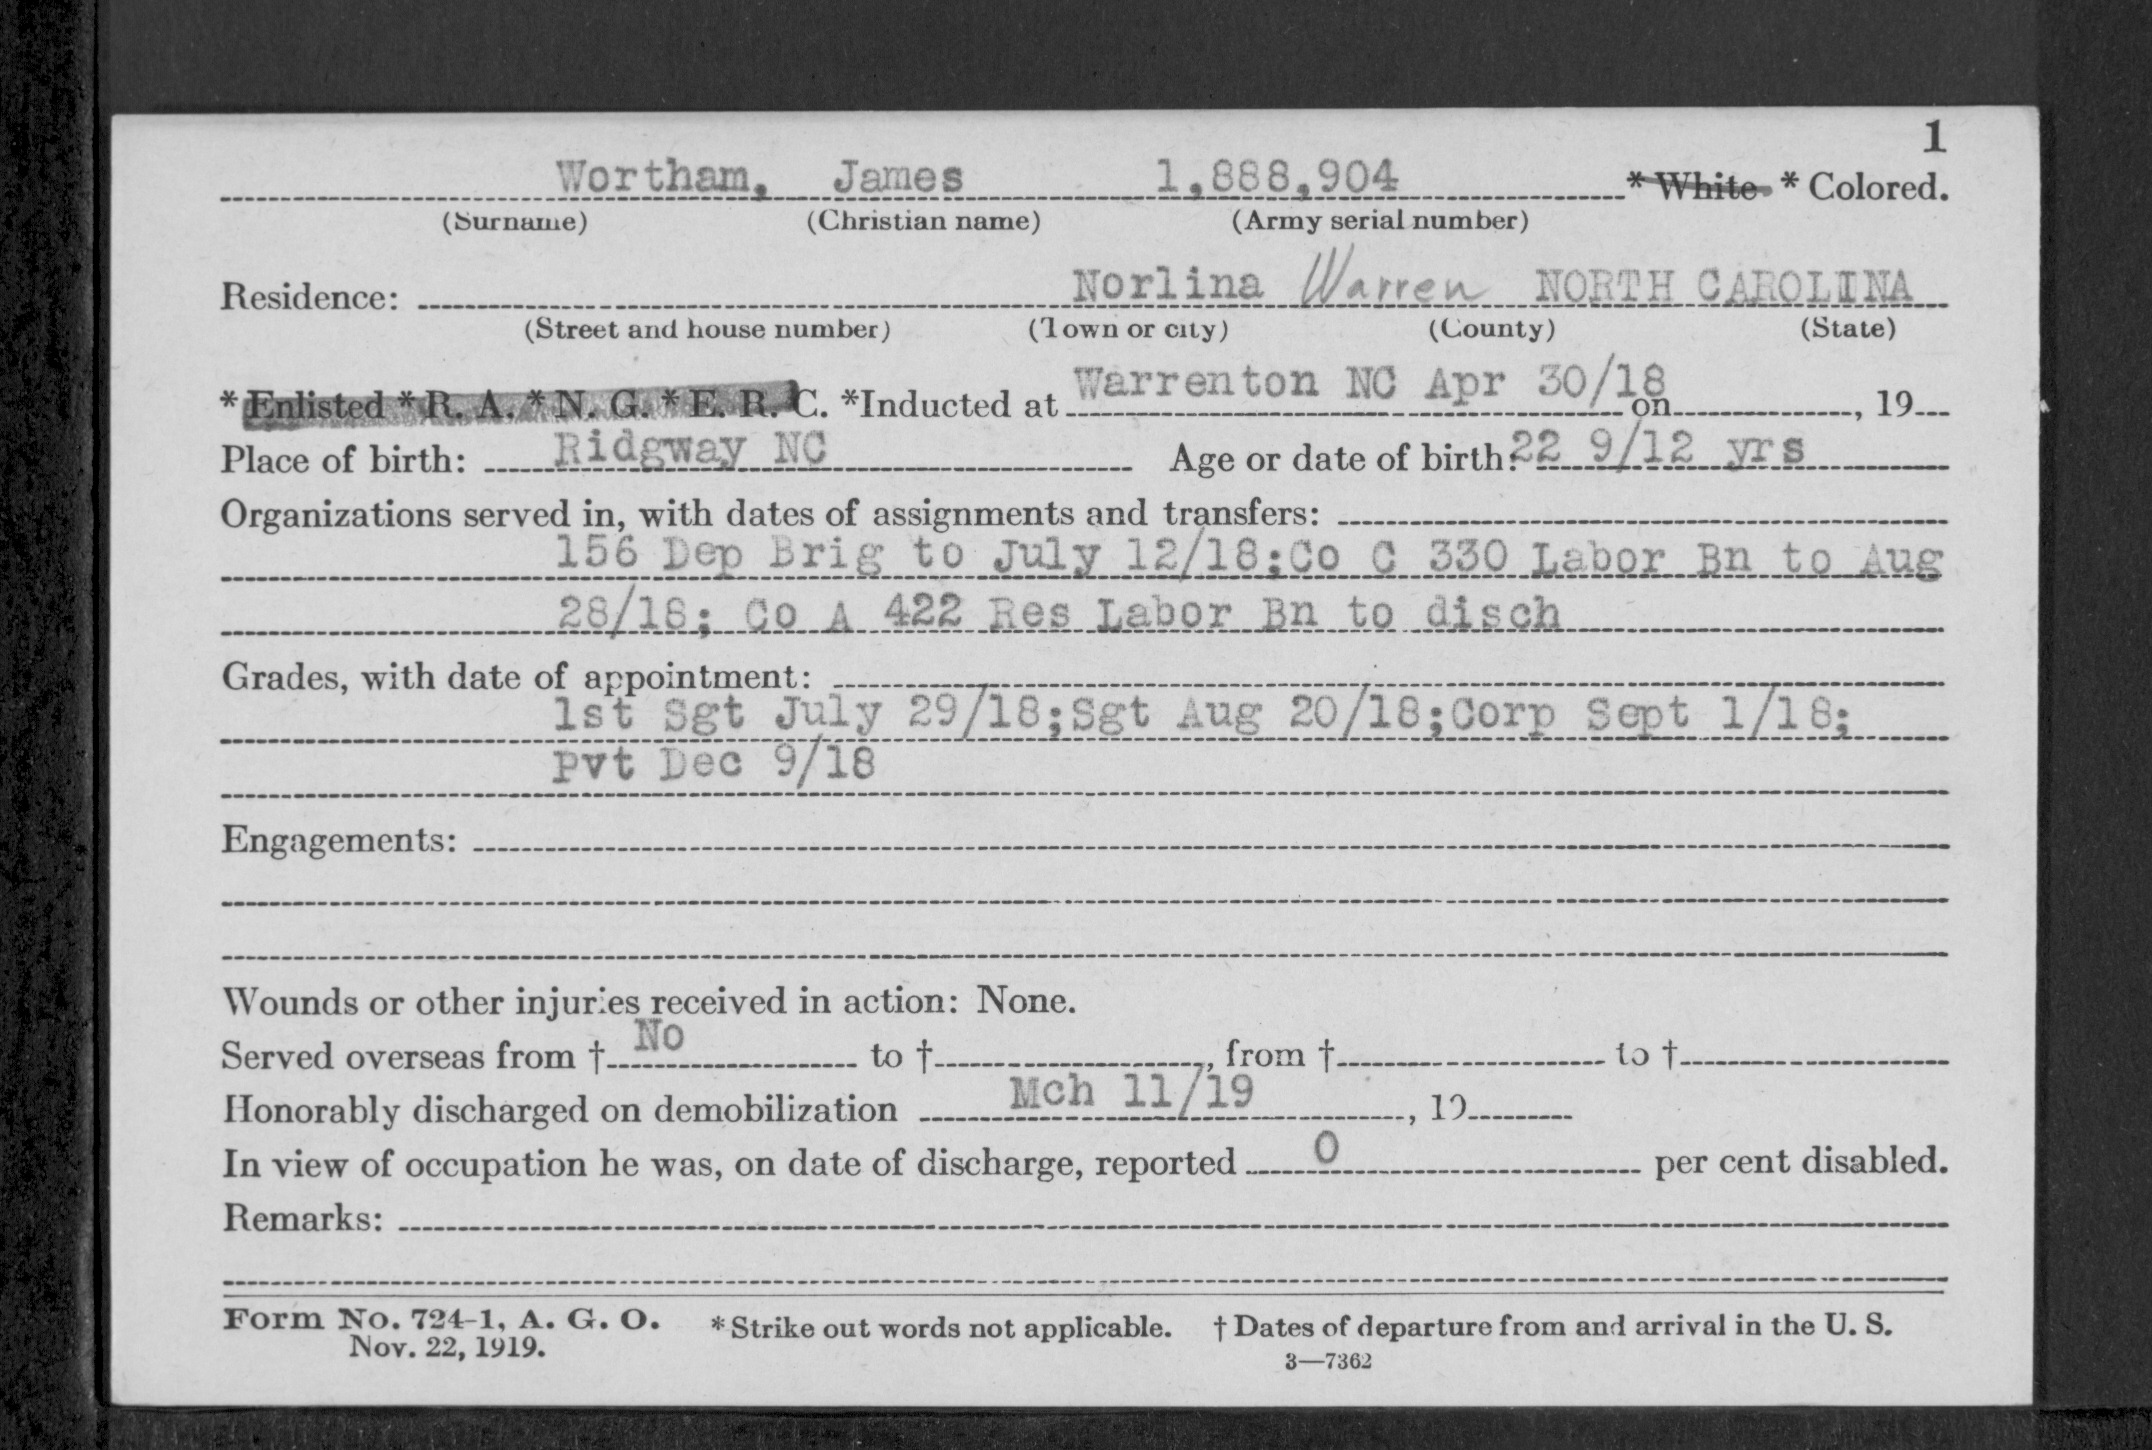 1
Wortham, James 1,888,904 *White *Colored.
(Surname) (Christian name) (Army serial number)
Residence: Norlina Warren NORTH CAROLINA
(Street and house number) (Town or city) (County) (State)
*Enlisted *R. A. *N. G. *E. R. C. *Inducted at Warrenton NC Apr 30/18 on , 19
Place of birth: Ridgway NC Age or date of birth: 22 9/12 yrs
Organizations served in, with dates of assignments and transfers:
156 Dep Brig to July 12/18; Co C 330 Labor Bn to Aug
28/18; Co A 422 Res Labor Bn to disch
Grades, with date of appointment:
1st Sgt July 29/18; Sgt Aug 20/18; Corp Sept 1/18;
Pvt Dec 9/18
Engagements:
Wounds or other injuries received in action: None.
Served overseas from † No to † , from † to †
Honorably discharged on demobilization Mch 11/19 , 19
In view of occupation he was, on date of discharge, reported 0 per cent disabled.
Remarks:
Form No. 724-1, A. G. O. *Strike out words not applicable. † Dates of departure from and arrival in the U. S.
Nov. 22, 1919.
3—7362